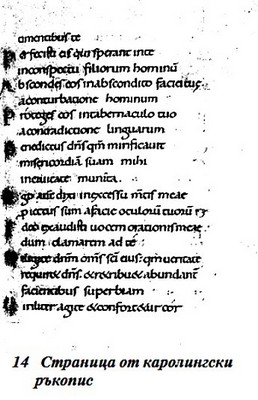 timentibus te
Perfecisti eis qui sperant in te
in conspectu filiorum hominū
Abscondes eos in abscondito faciei tuę
a conturbatione hominum
Proteges eos in tabernaculo tuo
a contradictione linguarum
Benedictus dn̄s qm̄ mirificauit
misericordiā suam mihi
in ciuitate munita
Ego autē dixi in excessu mentis meae
Proiectus sum a facie oculorū tuorū
Ideo exaudisti uocem orationis meae
dum clamarem ad te
Diligite dnm̄ om̄s sc̄i eius: qm̄ ueritatē
requiret dn̄s. & retribuet abundant
facientibus superbiam
Uiriliter agite & confortetur cor
14 Страница от каролингски
ръкопис